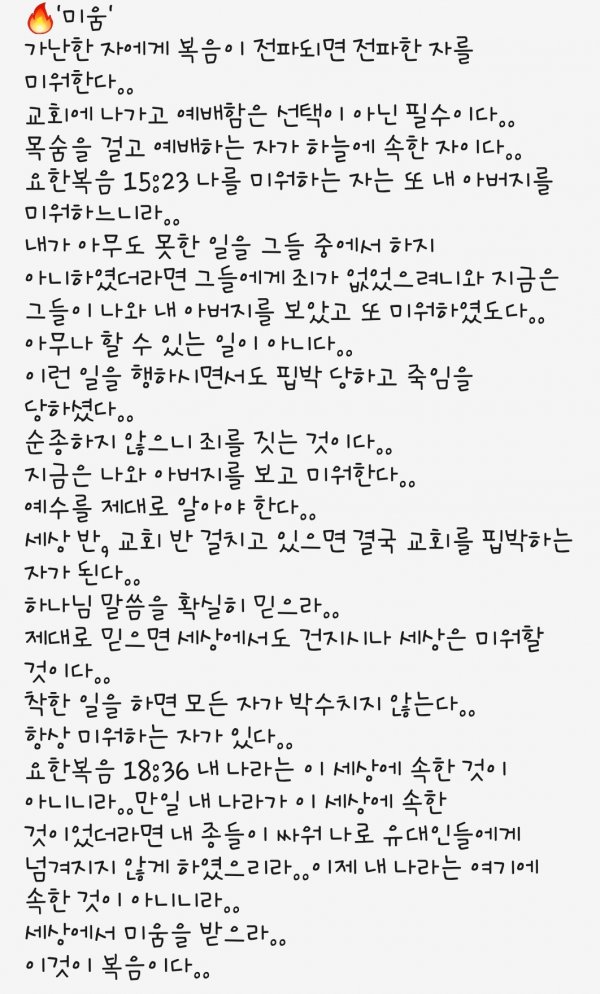 🔥'미움'
가난한 자에게 복음이 전파되면 전파한 자를
미워한다..
교회에 나가고 예배함은 선택이 아닌 필수이다..
목숨을 걸고 예배하는 자가 하늘에 속한 자이다..
요한복음 15:23 나를 미워하는 자는 또 내 아버지를
미워하느니라..
내가 아무도 못한 일을 그들 중에서 하지
아니하였더라면 그들에게 죄가 없었으려니와 지금은
그들이 나와 내 아버지를 보았고 또 미워하였도다..
아무나 할 수 있는 일이 아니다..
이런 일을 행하시면서도 핍박 당하고 죽임을
당하셨다..
순종하지 않으니 죄를 짓는 것이다..
지금은 나와 아버지를 보고 미워한다..
예수를 제대로 알아야 한다..
세상 반, 교회 반 걸치고 있으면 결국 교회를 핍박하는
자가 된다..
하나님 말씀을 확실히 믿으라..
제대로 믿으면 세상에서도 건지시나 세상은 미워할
것이다..
착한 일을 하면 모든 자가 박수치지 않는다..
항상 미워하는 자가 있다..
요한복음 18:36 내 나라는 이 세상에 속한 것이
아니니라..만일 내 나라가 이 세상에 속한
것이었더라면 내 종들이 싸워 나로 유대인들에게
넘겨지지 않게 하였으리라..이제 내 나라는 여기에
속한 것이 아니니라..
세상에서 미움을 받으라..
이것이 복음이다..